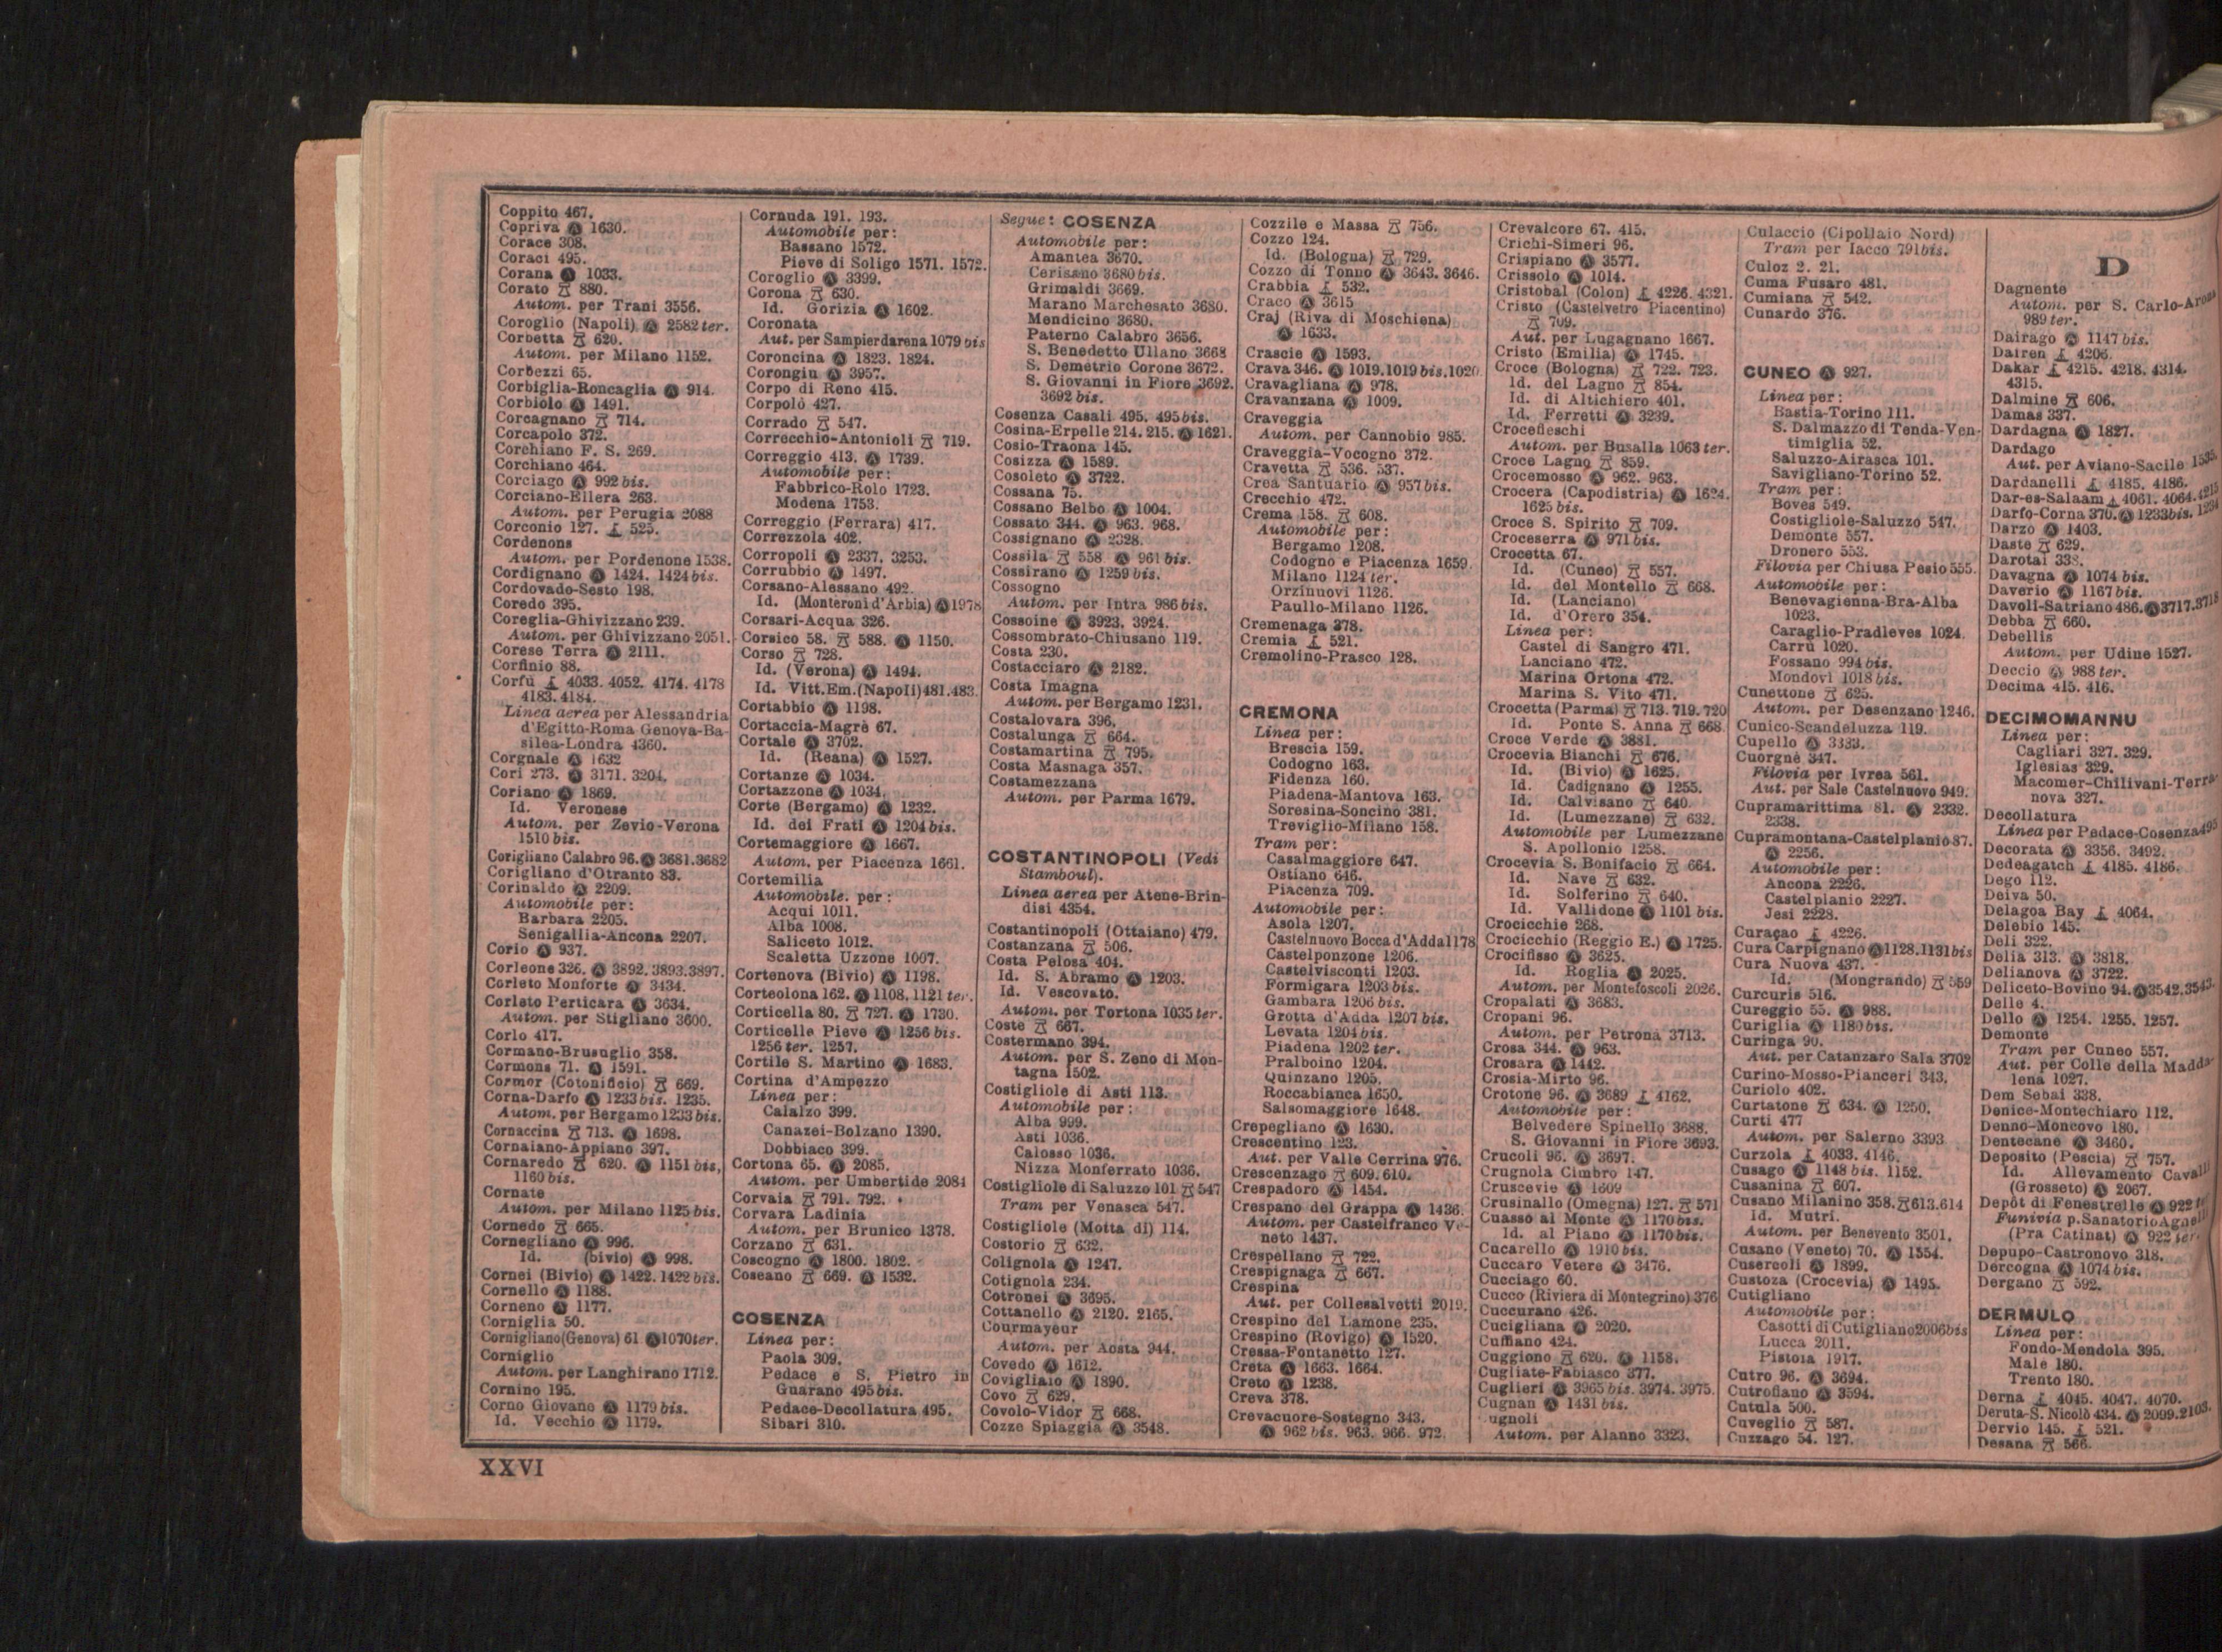 Coppito 467.
Copriva Ⓐ 1630.
Corace 308.
Coraci 495.
Corana Ⓐ 1033.
Corato 880.
Autom. per Trani 3556.
Coroglio (Napoli) Ⓐ 2582 ter.
Corbetta 620.
Autom. per Milano 1152.
Corbezzi 65.
Corbiglia-Roncaglia Ⓐ 914.
Corbiolo Ⓐ 1491.
Corcagnano 714.
Corcapolo 372.
Corchiano F. S. 269.
Corchiano 464.
Corciago Ⓐ 992 bis.
Corciano-Ellera 263.
Autom. per Perugia 2088
Corconio 127. 525.
Cordenons
Autom. per Pordenone 1538.
Cordignano Ⓐ 1424. 1424 bis.
Cordovado-Sesto 198.
Coredo 395.
Coreglia-Ghivizzano 239.
Autom. per Ghivizzano 2051.
Corese Terra Ⓐ 2111.
Corfinio 88.
Corfù 4033. 4052. 4174. 4178
4183. 4184.
Linea aerea per Alessandria
d'Egitto-Roma Genova-Ba-
silea-Londra 4360.
Corgnale Ⓐ 1632
Cori 273. Ⓐ 3171. 3204.
Coriano Ⓐ 1869.
Id. Veronese
Autom. per Zevio-Verona
1510 bis.
Corigliano Calabro 96. Ⓐ 3681. 3682
Corigliano d'Otranto 83.
Corinaldo Ⓐ 2209.
Automobile per:
Barbara 2205.
Senigallia-Ancona 2207.
Corio Ⓐ 937.
Corleone 326. Ⓐ 3892. 3893. 3897.
Corleto Monforte Ⓐ 3434.
Corleto Perticara Ⓐ 3634.
Autom. per Stigliano 3600.
Corlo 417.
Cormano-Brusuglio 358.
Cormons 71. Ⓐ 1591.
Cormor (Cotonificio) 669.
Corna-Darfo Ⓐ 1233 bis. 1235.
Autom. per Bergamo 1233 bis.
Cornaccina 713. Ⓐ 1698.
Cornaiano-Appiano 397.
Cornaredo 620. Ⓐ 1151 bis,
1160 bis.
Cornate
Autom. per Milano 1125 bis.
Cornedo 665.
Cornegliano Ⓐ 996.
Id. (bivio) Ⓐ 998.
Cornei (Bivio) Ⓐ 1422. 1422 bis.
Cornello Ⓐ 1188.
Corneno Ⓐ 1177.
Corniglia 50.
Cornigliano (Genova) 61 Ⓐ 1070 ter.
Corniglio
Autom. per Langhirano 1712.
Cornino 195.
Corno Giovane Ⓐ 1179 bis.
Id. Vecchio Ⓐ 1179.
Cornuda 191. 193.
Automobile per:
Bassano 1572.
Pieve di Soligo 1571. 1572.
Coroglio Ⓐ 3399.
Corona 630.
Id. Gorizia Ⓐ 1602.
Coronata
Aut. per Sampierdarena 1079 bis
Coroncina Ⓐ 1823. 1824.
Corongiu Ⓐ 3957.
Corpo di Reno 415.
Corpolò 427.
Corrado 547.
Correcchio-Antonioli 719.
Correggio 413. Ⓐ 1739.
Automobile per:
Fabbrico-Rolo 1723.
Modena 1753.
Correggio (Ferrara) 417.
Correzzola 402.
Corropoli Ⓐ 2337. 3253.
Corrubbio Ⓐ 1497.
Corsano-Alessano 492.
Id. (Monteroni d'Arbia) Ⓐ 1978
Corsari-Acqua 326.
Corsico 58. 588. Ⓐ 1150.
Corso 728.
Id. (Verona) Ⓐ 1494.
Id. Vitt. Em. (Napoli) 481. 483.
Cortabbio Ⓐ 1198.
Cortaccia-Magrè 67.
Cortale Ⓐ 3702.
Id. (Reana) Ⓐ 1527.
Cortanze Ⓐ 1034.
Cortazzone Ⓐ 1034.
Corte (Bergamo) Ⓐ 1232.
Id. dei Frati Ⓐ 1204 bis.
Cortemaggiore Ⓐ 1667.
Autom. per Piacenza 1661.
Cortemilia
Automobile. per:
Acqui 1011.
Alba 1008.
Saliceto 1012.
Scaletta Uzzone 1007.
Cortenova (Bivio) Ⓐ 1198.
Corteolona 162. Ⓐ 1108. 1121 ter.
Corticella 80. 727. Ⓐ 1730.
Corticelle Pieve Ⓐ 1256 bis.
1256 ter. 1257.
Cortile S. Martino Ⓐ 1683.
Cortina d'Ampezzo
Linea per:
Calalzo 399.
Canazei-Bolzano 1390.
Dobbiaco 399.
Cortona 65. Ⓐ 2085.
Autom. per Umbertide 2084
Corvaia 791. 792.
Corvara Ladinia
Autom. per Brunico 1378.
Corzano 631.
Coscogno Ⓐ 1800. 1802.
Coseano 669. Ⓐ 1532.
COSENZA
Linea per:
Paola 309.
Pedace e S. Pietro in
Guarano 495 bis.
Pedace-Decollatura 495.
Sibari 310.
Segue: COSENZA
Automobile per:
Amantea 3670.
Cerisano 3680 bis.
Grimaldi 3669.
Marano Marchesato 3680.
Mendicino 3680.
Paterno Calabro 3656.
S. Benedetto Ullano 3668
S. Demetrio Corone 3672.
S. Giovanni in Fiore 3692.
3692 bis.
Cosenza Casali 495. 495 bis.
Cosina-Erpelle 214. 215. Ⓐ 1621.
Cosio-Traona 145.
Cosizza Ⓐ 1589.
Cosoleto Ⓐ 3722.
Cossana 75.
Cossano Belbo Ⓐ 1004.
Cossato 344. Ⓐ 963. 968.
Cossignano Ⓐ 2328.
Cossila 558 Ⓐ 961 bis.
Cossirano Ⓐ 1259 bis.
Cossogno
Autom. per Intra 986 bis.
Cossoine Ⓐ 3923. 3924.
Cossombrato-Chiusano 119.
Costa 230.
Costacciaro Ⓐ 2182.
Costa Imagna
Autom. per Bergamo 1231.
Costalovara 396.
Costalunga 664.
Costamartina 795.
Costa Masnaga 357.
Costamezzana
Autom. per Parma 1679.
COSTANTINOPOLI (Vedi
Stamboul).
Linea aerea per Atene-Brin-
disi 4354.
Costantinopoli (Ottaiano) 479.
Costanzana 506.
Costa Pelosa 404.
Id. S. Abramo Ⓐ 1203.
Id. Vescovato.
Autom. per Tortona 1035 ter.
Coste 667.
Costermano 394.
Autom. per S. Zeno di Mon-
tagna 1502.
Costigliole di Asti 113.
Automobile per:
Alba 999.
Asti 1036.
Calosso 1036.
Nizza Monferrato 1036.
Costigliole di Saluzzo 101 547
Tram per Venasca 547.
Costigliole (Motta di) 114.
Costorio 632.
Colignola Ⓐ 1247.
Cotignola 234.
Cotronei Ⓐ 3695.
Cottanello Ⓐ 2120. 2165.
Courmayeur
Autom. per Aosta 944.
Covedo Ⓐ 1612.
Covigliaio Ⓐ 1890.
Covo 629.
Covolo-Vidor 668.
Cozze Spiaggia Ⓐ 3548.
Cozzile e Massa 756.
Cozzo 124.
Id. (Bologna) 729.
Cozzo di Tonno Ⓐ 3643. 3646.
Crabbia 532.
Craco Ⓐ 3615
Craj (Riva di Moschiena)
Ⓐ 1633.
Crascie Ⓐ 1593.
Crava 346. Ⓐ 1019. 1019 bis. 1020.
Cravagliana Ⓐ 978.
Cravanzana Ⓐ 1009.
Craveggia
Autom. per Cannobio 985.
Craveggia-Vocogno 372.
Cravetta 536. 537.
Crea Santuario Ⓐ 957 bis.
Crecchio 472.
Crema 158. 608.
Automobile per:
Bergamo 1208.
Codogno e Piacenza 1659.
Milano 1124 ter.
Orzinuovi 1126.
Paullo-Milano 1126.
Cremenaga 378.
Cremia 521.
Cremolino-Prasco 128.
CREMONA
Linea per:
Brescia 159.
Codogno 163.
Fidenza 160.
Piadena-Mantova 163.
Soresina-Soncino 381.
Treviglio-Milano 158.
Tram per:
Casalmaggiore 647.
Ostiano 646.
Piacenza 709.
Automobile per:
Asola 1207.
Castelnuovo Bocca d'Adda 1178
Castelponzone 1206.
Castelvisconti 1203.
Formigara 1203 bis.
Gambara 1206 bis.
Grotta d'Adda 1207 bis.
Levata 1204 bis.
Piadena 1202 ter.
Pralboino 1204.
Quinzano 1205.
Roccabianca 1650.
Salsomaggiore 1648.
Crepegliano Ⓐ 1630.
Crescentino 123.
Aut. per Valle Cerrina 976.
Crescenzago 609. 610.
Crespadoro Ⓐ 1454.
Crespano del Grappa Ⓐ 1436.
Autom. per Castelfranco Ve-
neto 1437.
Crespellano 722.
Crespignaga 667.
Crespina
Aut. per Collesalvetti 2019.
Crespino del Lamone 235.
Crespino (Rovigo) Ⓐ 1520.
Cressa-Fontanetto 127.
Creta Ⓐ 1663. 1664.
Creto Ⓐ 1238.
Creva 378.
Crevacuore-Sostegno 343.
Ⓐ 962 bis. 963. 966. 972.
Crevalcore 67. 415.
Crichi-Simeri 96.
Crispiano Ⓐ 3577.
Crissolo Ⓐ 1014.
Cristobal (Colon) 4226. 4321.
Cristo (Castelvetro Piacentino)
709.
Aut. per Lugagnano 1667.
Cristo (Emilia) Ⓐ 1745.
Croce (Bologna) 722. 723.
Id. del Lagno 854.
Id. di Altichiero 401.
Id. Ferretti Ⓐ 3239.
Crocefieschi
Autom. per Busalla 1063 ter.
Croce Lagno 859.
Crocemosso Ⓐ 962. 963.
Crocera (Capodistria) Ⓐ 1624.
1625 bis.
Croce S. Spirito 709.
Croceserra Ⓐ 971 bis.
Crocetta 67.
Id. (Cuneo) 557.
Id. del Montello 668.
Id. (Lanciano)
Id. d'Orero 354.
Linea per:
Castel di Sangro 471.
Lanciano 472.
Marina Ortona 472.
Marina S. Vito 471.
Crocetta (Parma) 713. 719. 720
Id. Ponte S. Anna 668.
Croce Verde Ⓐ 3881.
Crocevia Bianchi 676.
Id. (Bivio) Ⓐ 1625.
Id. Cadignano Ⓐ 1255.
Id. Calvisano 640.
Id. (Lumezzane) 632.
Automobile per Lumezzane
S. Apollonio 1258.
Crocevia S. Bonifacio 664.
Id. Nave 632.
Id. Solferino 640.
Id. Vallidone Ⓐ 1101 bis.
Crocicchie 268.
Crocicchio (Reggio E.) Ⓐ 1725.
Crocifisso Ⓐ 3625.
Id. Roglia Ⓐ 2025.
Autom. per Montefoscoli 2026.
Cropalati Ⓐ 3683.
Cropani 96.
Autom. per Petronà 3713.
Crosa 344. Ⓐ 963.
Crosara Ⓐ 1442.
Crosia-Mirto 96.
Crotone 96. Ⓐ 3689 4162.
Automobile per:
Belvedere Spinello 3688.
S. Giovanni in Fiore 3693.
Crucoli 96. Ⓐ 3697.
Crugnola Cimbro 147.
Cruscevie Ⓐ 1609
Crusinallo (Omegna) 127. 571
Cuasso al Monte Ⓐ 1170 bis.
Id. al Piano Ⓐ 1170 bis.
Cucarello Ⓐ 1910 bis.
Cuccaro Vetere Ⓐ 3476.
Cucciago 60.
Cucco (Riviera di Montegrino) 376
Cuccurano 426.
Cucigliana Ⓐ 2020.
Cuffiano 424.
Cuggiono 620. Ⓐ 1158.
Cugliate-Fabiasco 377.
Cuglieri Ⓐ 3965 bis. 3974. 3975.
Cugnan Ⓐ 1431 bis.
ugnoli
Autom. per Alanno 3323.
Culaccio (Cipollaio Nord)
Tram per Iacco 791 bis.
Culoz 2. 21.
Cuma Fusaro 481.
Cumiana 542.
Cunardo 376.
CUNEO Ⓐ 927.
Linea per:
Bastia-Torino 111.
S. Dalmazzo di Tenda-Ven-
timiglia 52.
Saluzzo-Airasca 101.
Savigliano-Torino 52.
Tram per:
Boves 549.
Costigliole-Saluzzo 547.
Demonte 557.
Dronero 553.
Filovia per Chiusa Pesio 555.
Automobile per:
Benevagienna-Bra-Alba
1023.
Caraglio-Pradleves 1024.
Carrù 1020.
Fossano 994 bis.
Mondovì 1018 bis.
Cunettone 625.
Autom. per Desenzano 1246.
Cunico-Scandeluzza 119.
Cupello Ⓐ 3333.
Cuorgnè 347.
Filovia per Ivrea 561.
Aut. per Sale Castelnuovo 949.
Cupramarittima 81. Ⓐ 2332.
2338.
Cupramontana-Castelplanio 87.
Ⓐ 2256.
Automobile per:
Ancona 2226.
Castelplanio 2227.
Jesi 2228.
Curaçao 4226.
Cura Carpignano Ⓐ 1128. 1131 bis
Cura Nuova 437.
Id. (Mongrando) 559
Curcuris 516.
Cureggio 55. Ⓐ 988.
Curiglia Ⓐ 1180 bis.
Curinga 90.
Aut. per Catanzaro Sala 3702
Curino-Mosso-Pianceri 343.
Curiolo 402.
Curtatone 634. Ⓐ 1250.
Curti 477
Autom. per Salerno 3393
Curzola 4033. 4146.
Cusago Ⓐ 1148 bis. 1152.
Cusanina 607.
Cusano Milanino 358. 613. 614
Id. Mutri.
Autom. per Benevento 3501.
Cusano (Veneto) 70. Ⓐ 1554.
Cusercoli Ⓐ 1899.
Custoza (Crocevia) Ⓐ 1495.
Cutigliano
Automobile per:
Casotti di Cutigliano 2006 bis
Lucca 2011.
Pistoia 1917.
Cutro 96. Ⓐ 3694.
Cutrofiano Ⓐ 3594.
Cutula 500.
Cuveglio 587.
Cuzzago 54. 127.
D
Dagnente
Autom. per S. Carlo-Arona
989 ter.
Dairago Ⓐ 1147 bis.
Dairen 4206.
Dakar 4215. 4218. 4314.
4315.
Dalmine 606.
Damas 337.
Dardagna Ⓐ 1827.
Dardago
Aut. per Aviano-Sacile 1535.
Dardanelli 4185. 4186.
Dar-es-Salaam 4061. 4064. 4215
Darfo-Corna 370. Ⓐ 1233 bis. 1234
Darzo Ⓐ 1403.
Daste 629.
Darotai 338.
Davagna Ⓐ 1074 bis.
Daverio Ⓐ 1167 bis.
Davoli-Satriano 486. Ⓐ 3717. 3718
Debba 660.
Debellis
Autom. per Udine 1527.
Deccio Ⓐ 988 ter.
Decima 415. 416.
DECIMOMANNU
Linea per:
Cagliari 327. 329.
Iglesias 329.
Macomer-Chilivani-Terra-
nova 327.
Decollatura
Linea per Pedace-Cosenza 495
Decorata Ⓐ 3356. 3492.
Dedeagatch 4185. 4186.
Dego 112.
Deiva 50.
Delagoa Bay 4064.
Delebio 145.
Deli 322.
Delia 313. Ⓐ 3818.
Delianova Ⓐ 3722.
Deliceto-Bovino 94. Ⓐ 3542. 3543.
Delle 4.
Dello Ⓐ 1254. 1255. 1257.
Demonte
Tram per Cuneo 557.
Aut. per Colle della Madda-
lena 1027.
Dem Sebai 338.
Denice-Montechiaro 112.
Denno-Moncovo 180.
Dentecane Ⓐ 3460.
Deposito (Pescia) 757.
Id. Allevamento Cavalli
(Grosseto) Ⓐ 2067.
Depôt di Fenestrelle Ⓐ 922
Funivia p. Sanatorio Agnelli
(Pra Catinat) Ⓐ 922 ter.
Depupo-Castronovo 318.
Dercogna Ⓐ 1074 bis.
Dergano 592.
DERMULO
Linea per:
Fondo-Mendola 395.
Male 180.
Trento 180.
Derna 4045. 4047. 4070.
Deruta-S. Nicolò 434. Ⓐ 2099. 2103.
Dervio 145. 521.
Desana 566.
XXVI